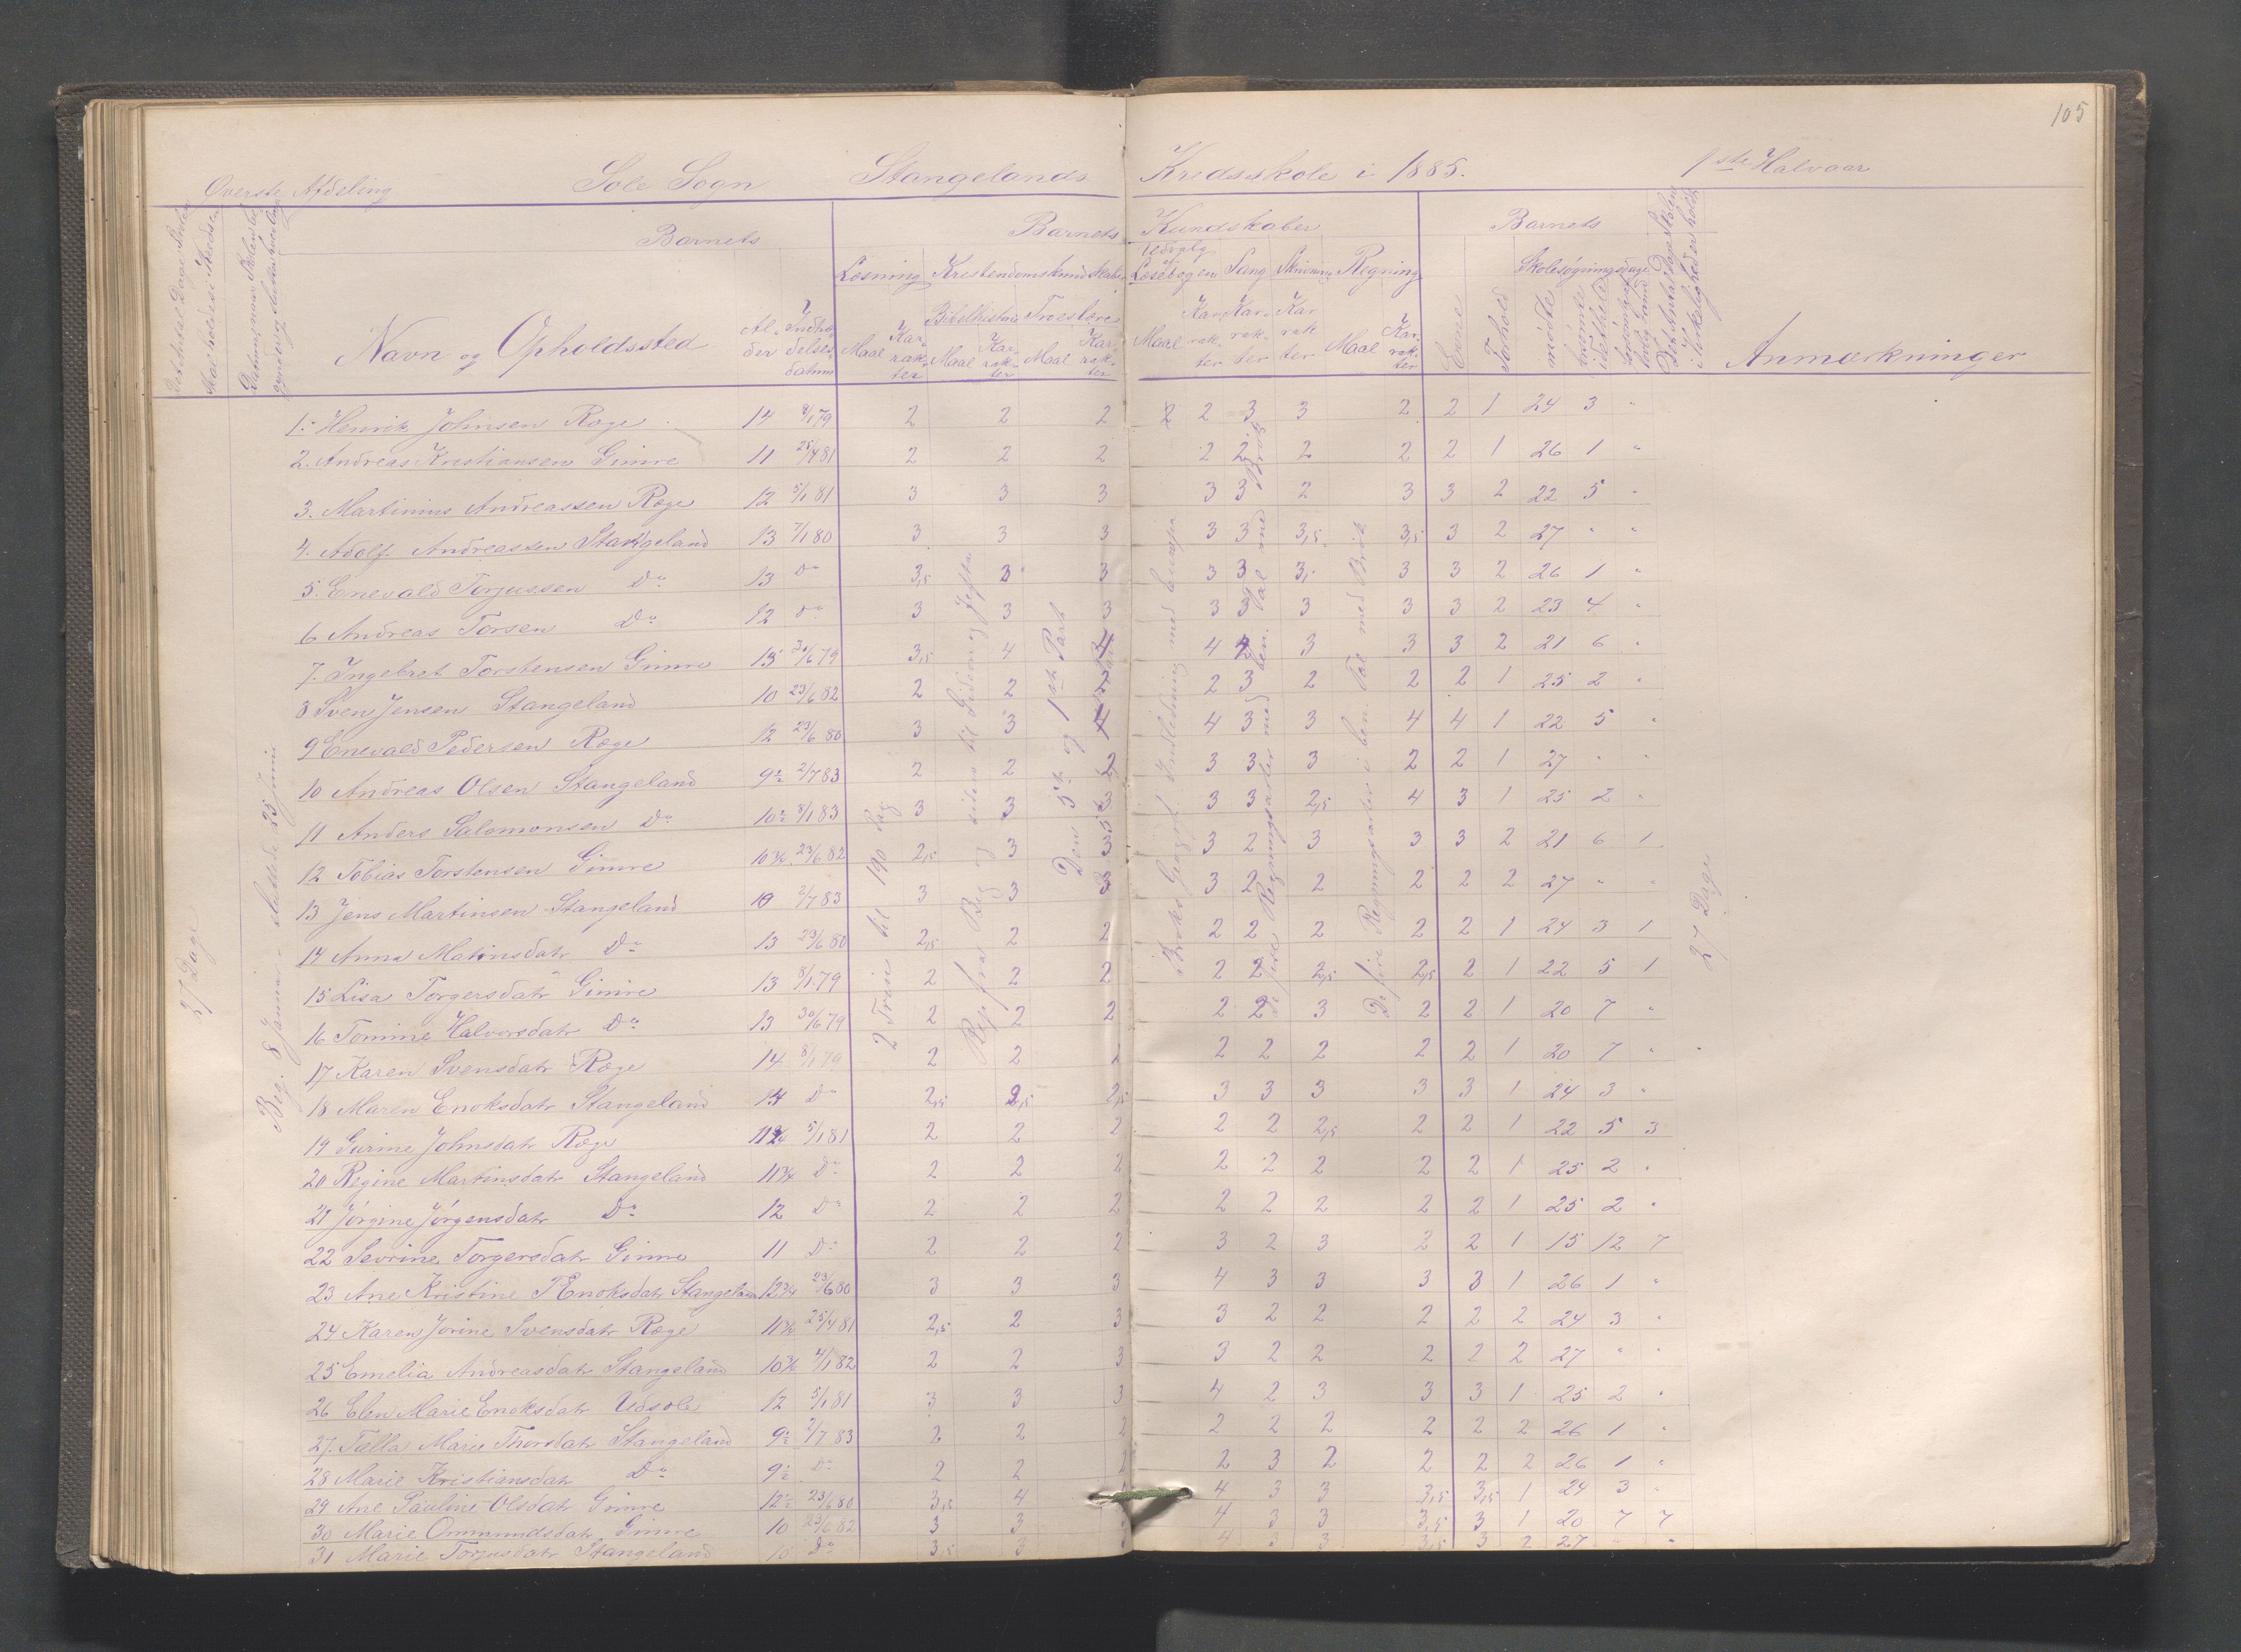 105
Overste Afdeling Sole Sogn Stangelands Kredsskole i 1885. 1ste Halvaar
Barnets Barnets Kundskaber Barnets
Læsning Kristendomskundskaber Udvalg af Læsebogen Sang Skrivning Regning Evne Forhold Skolesøgningsdage
Bibelhistorie Troeslære
Navn og Opholdssted Alder Indtrædelsesdatum Maal Karakter Maal Karakter Maal Karakter Maal Karakter Karakter Karakter Maal Karakter mødte Anmærkninger
27 Dage
Beg. 8 Januar - sluttede 25 Juni
2 Trin til 190 Pag
Rep fra Beg og siden til Gideon og Jefta
Den 5te og 1ste Part
De fire Regningsarter med ben. Tal med Brøk
De fire Regningsarter i ben. Tal med Brøk
27 Dage
1. Henrik Johnsen Røge 14 8/1 79 2 2 2 2 2 3 3 2 2 1 24 3 "
2. Andreas Kristiansen Gimre 11 25/4 81 2 2 2 2 2 2 2 2 1 26 1 "
3. Martinius Andreassen Røge 12 5/1 81 3 3 3 3 3 2 3 3 2 22 5 "
4. Adolf Andreassen Stangeland 13 7/1 80 3 3 3 3 3 3,5 3,5 3 2 27 " "
5. Enevald Torjussen Do 13 Do 3,5 3 3 3 3 3,5 3 3 2 26 1 "
6 Andreas Torsen Do 12 Do 3 3 3 3 3 3 3 3 2 23 4 "
7. Ingebret Torstensen Gimre 13 30/6 79 3,5 4 4 4 4 3 3 3 2 21 6 "
8 Sven Jensen Stangeland 10 23/6 82 2 2 2 2 3 2 2 2 1 25 2 "
9 Enevald Pedersen Røge 12 23/6 80 3 3 4 4 3 3 4 4 1 22 5 "
10 Andreas Olsen Stangeland 9½ 2/7 83 2 2 2 3 3 3 2 2 1 27 " "
11 Anders Salomonsen Do 10½ 8/1 83 3 3 3 3 3 2,5 4 3 1 25 2 "
12 Tobias Torstensen Gimre 10¾ 23/6 82 2,5 3 3 3 2 3 3 3 2 21 6 1
13 Jens Martinsen Stangeland 10 2/7 83 3 3 3 3 2 2 2 2 2 27 " "
14 Anna Matinsdatr Do 13 23/6 80 2,5 2 2 2 2 2 2 2 1 24 3 1
15 Lisa Torgersdatr Gimre 13 8/1 79 2 2 2 2 2 2,5 2,5 2 1 22 5 1
16 Tomine Halvorsdatr Do 13 30/6 79 2 2 2 2 2 3 2 2 1 20 7 "
17 Karen Svensdatr Røge 14 8/1 79 2 2 2 2 2 2 2 2 1 20 7 "
18 Maren Enoksdatr Stangeland 14 Do 2,5 2,5 2,5 3 3 3 3 3 1 24 3 "
19 Gurine Johnsdatr Røge 11¾ 5/1 81 2 2 2 2 2 2,5 2 2 1 22 5 3
20 Regine Martinsdatr Stangeland 11¾ Do 2 2 2 2 2 2 2 2 1 25 2 "
21 Jørgine Jørgensdatr Do 12 Do 2 2 2 2 2 2 2 2 1 25 2 "
22 Sevrine Torgersdatr Gimre 11 Do 2 2 2 3 2 3 2 2 1 15 12 7
23 Ane Kristine Enoksdatr Stangeland 12¾ 23/6 80 3 3 3 4 3 3 3 3 1 26 1 "
24 Karen Jorine Svensdatr Røge 11½ 25/4 81 2,5 2 3 3 2 2 2 2 2 24 3 "
25 Emelia Andreasdatr Stangeland 10¾ 4/1 82 2 2 3 3 2 2 2 2 2 27 " "
26 Elen Marie Enoksdatr Udsole 12 5/1 81 3 3 3 4 2 3 3 3 1 25 2 "
27. Tella Marie Thorsdatr Stangeland 9½ 2/7 83 2 2 2 2 2 2 2 2 2 26 1 "
28 Marie Kristiansdatr Do 9½ Do 2 2 2 2 3 2 2 2 2 26 1 "
29 Ane Pauline Olsdatr Gimre 12½ 23/6 80 3,5 4 4 3 3 3,5 3,5 1 24 3 "
30 Marie Ommundsdatr Gimre 10 23/6 82 3 3 4 3 3 3,5 3 1 20 7 7
31 Marie Torjusdatr Stangeland 10 Do 3,5 3 3 4 3 3 3,5 3 2 27 " "